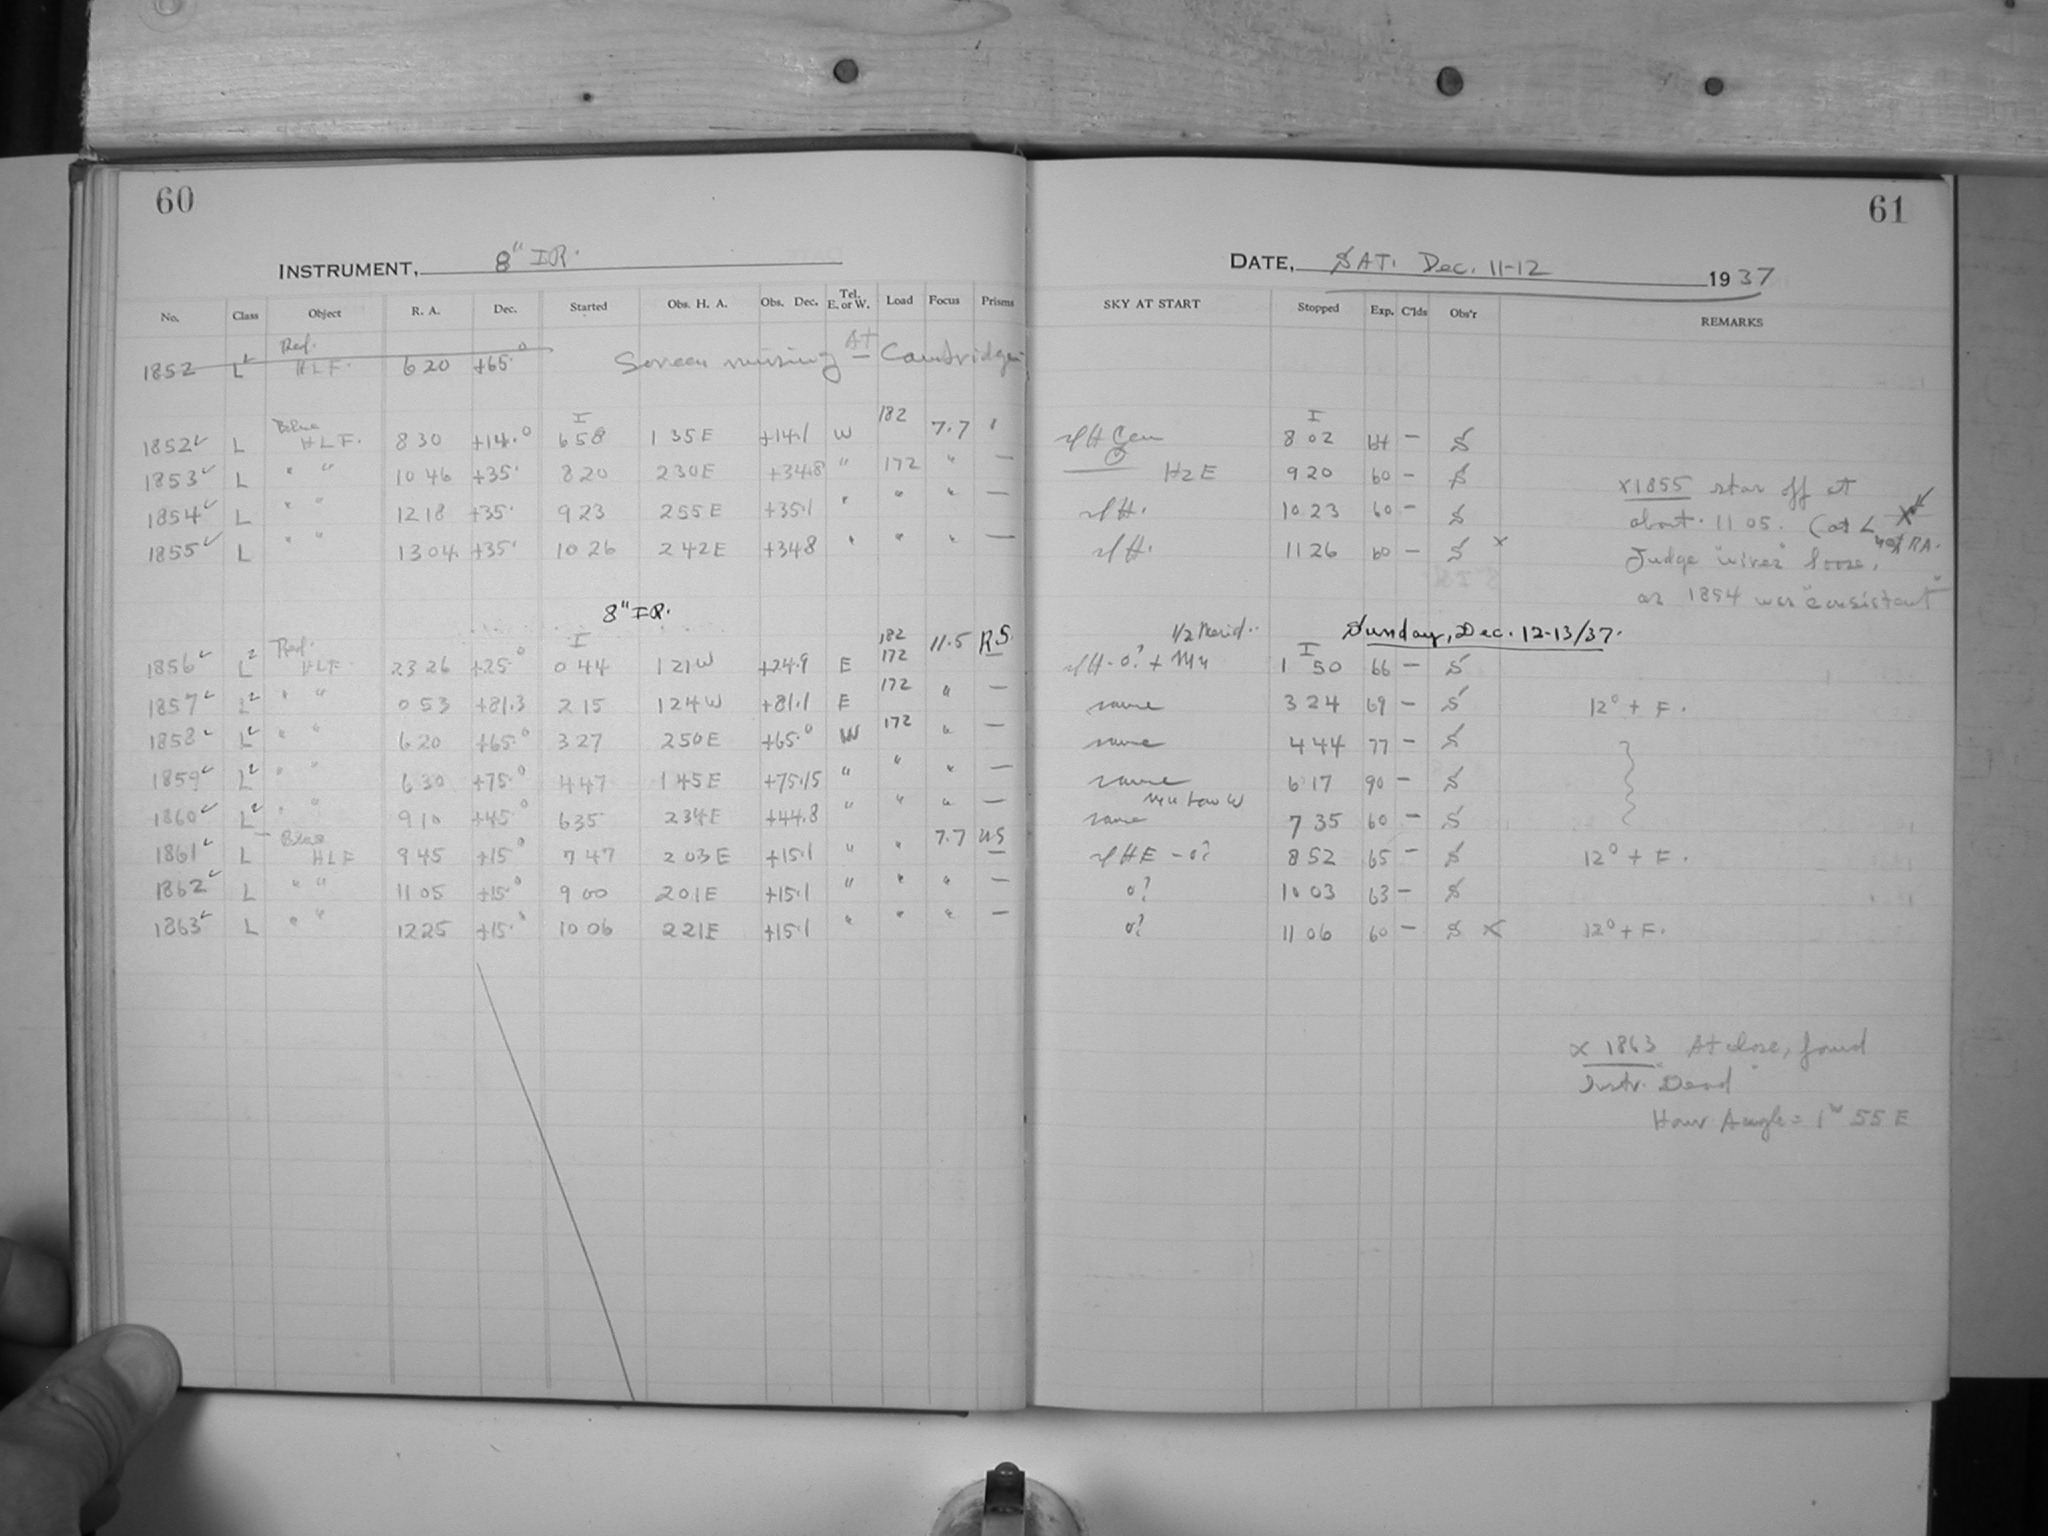 60
INSTRUMENT, 8" IR.
No. Class Object R. A. Dec. Started Obs. H. A. Obs. Dec. Tel. E. or W. Load Focus Prisms
Red.
1852 L² HLF. 6 20 +65.° Screen missing At Cambridge
Blue I 182
1852✓ L HLF. 8 30 +14.° 6 58 1 35 E +14.1 W 7.7
1853✓ L " " 10 46 +35. 8 20 2 30 E +34.8 " 172 " —
1854✓ L " " 12 18 +35. 9 23 2 55 E +35.1 " " " —
1855✓ L " " 13 04 +35. 10 26 2 42 E +34.8 " " " —
8" IR.
Red. I 182 11.5 RS
1856✓ L² HLF 23 26 +25.° 0 44 1 21 W +24.9 E 172
1857✓ L² " " 0 53 +81.3 2 15 1 24 W +81.1 E 172 " —
1858✓ L² " " 6 20 +65.° 3 27 2 50 E +65.° W 172 " —
1859✓ L² " " 6 30 +75.° 4 47 1 45 E +75.15 " " " —
1860✓ L² " " 9 10 +45.° 6 35 2 34 E +44.8 " " " —
Blue
1861✓ L HLF 9 45 +15.° 7 47 2 03 E +15.1 " " 7.7 US
1862✓ L " " 11 05 +15.° 9 00 2 01 E +15.1 " " " —
1863✓ L " " 12 25 +15.° 10 06 2 21 E +15.1 " " " —
61
DATE, SAT. Dec. 11-12 1937
SKY AT START Stopped Exp. C'lds Obs'r REMARKS
I
8 02 64 — S
H2E 9 20 60 — S
10 23 60 — S
11 26 60 — S x
x 1855 star off at
about 11 05. (at L
not RA.
Judge "wires" loose,
as 1854 was "consistent"
1/2 Merid. Sunday, Dec. 12-13/37.
I
1 50 66 — S
same 3 24 69 — S 12° + F.
same 4 44 77 — S
same 6 17 90 — S
Low W
same 7 35 60 — S
8 52 65 — S 12° + F.
0? 10 03 63 — S
0? 11 06 60 — S x 12° + F.
x 1863 At close, found
Instr. "Dead"
Hour Angle = 1ʰ 55 E